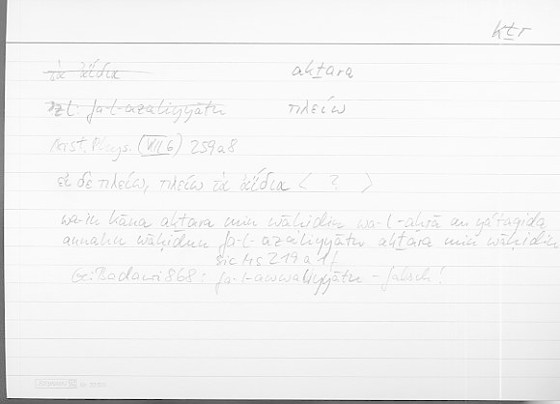 kṯr
τὰ ἀΐδια akṯara
fa-l-azaliyyātu πλείω
Arist. Phys. (VIII 6) 259a8
εἰ δὲ πλείω, πλείω τὰ ἀΐδια < ? >
wa-in kāna akṯara min wāḥidin wa-l-aḥrā an
annahu wāḥidun fa-l-azaliyyātu akṯara min wāḥidin
sic Ms 219 a
Badawi 868: fa-l-awwaliyyātu - falsch!